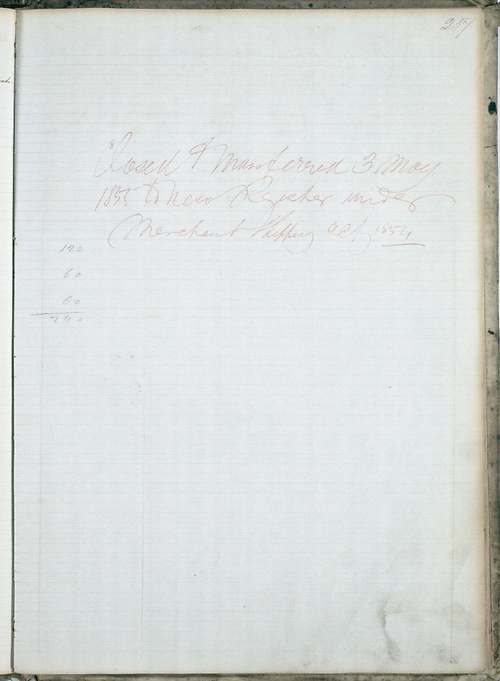 257
Closed & transferred 3 May
1855 to new Register under
Merchant Shipping Act 1854
120
60
60
240